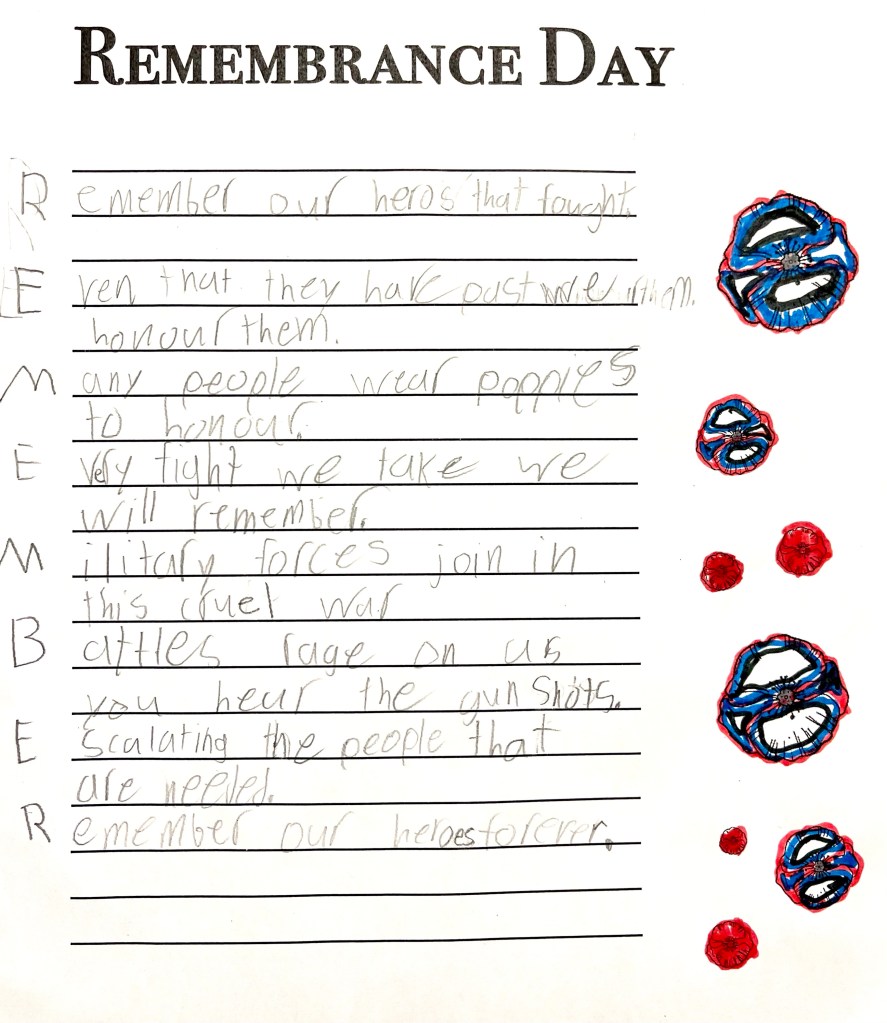 REMEMBRANCE DAY
Remember our heros that fought.
Even that they have past we
honour them.
Many people wear poppies
to honour.
Every fight we take we
will remember.
Military forces join in
this cruel war
Battles rage on us
you hear the gun shots.
Escalating the people that
are needed.
Remember our heroes forever.